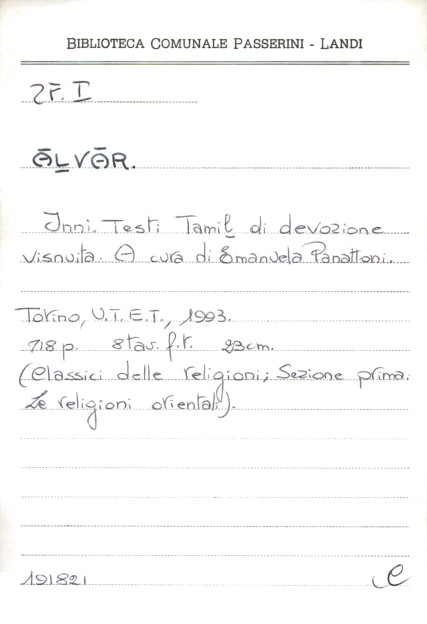 BIBLIOTECA COMUNALE PASSERINI - LANDI
2F. I
ĀḺVĀR.
Inni. Testi Tamiḻ di devozione
visnuita. A cura di Emanuela Panattoni.
Torino, U.T.E.T., 1993.
718 p. 8 tav. f.t. 23cm.
(Classici delle religioni; Sezione prima.
Le religioni orientali).
191821 C